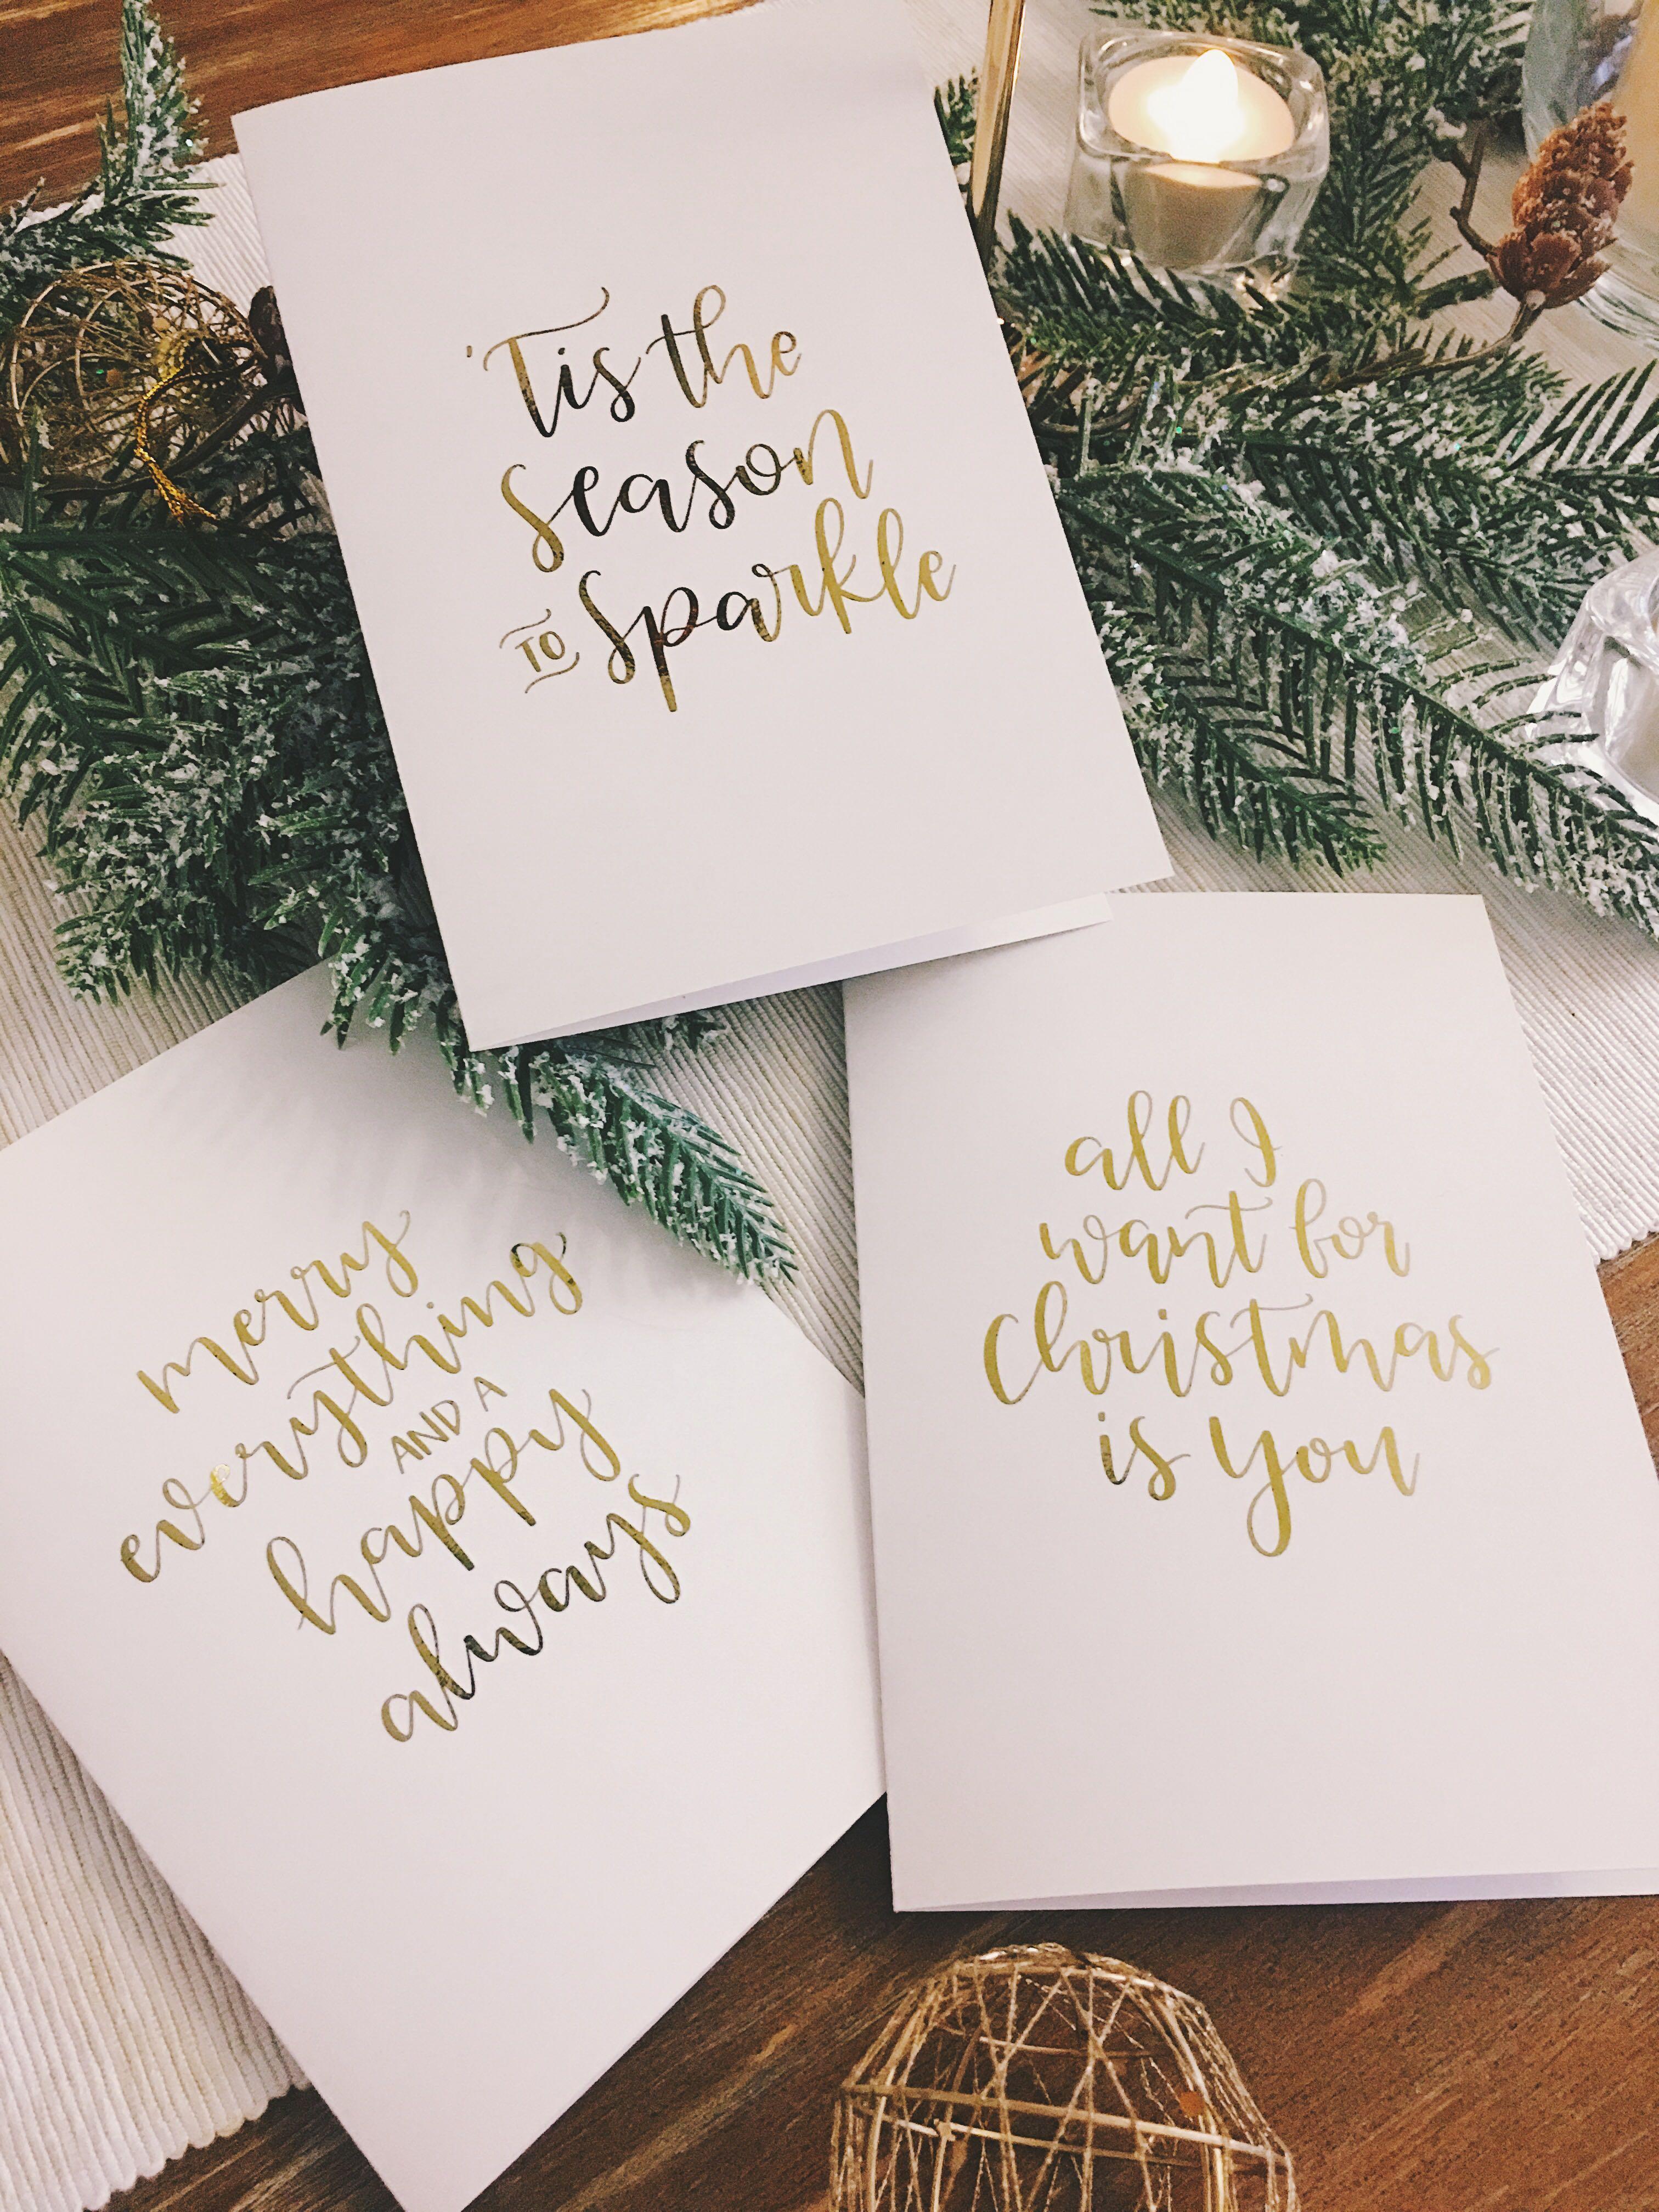 'Tis the
season
TO Sparkle
merry
everything
AND A
happy
always
all I
want for
Christmas
is you